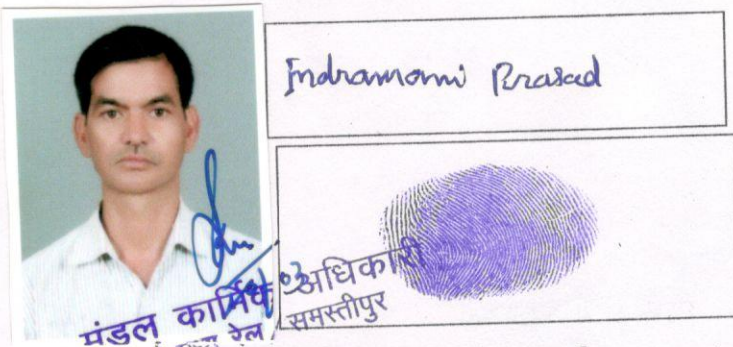 Indramani Prasad
मंडल कार्मिक अधिकारी
रेल / समस्तीपुर